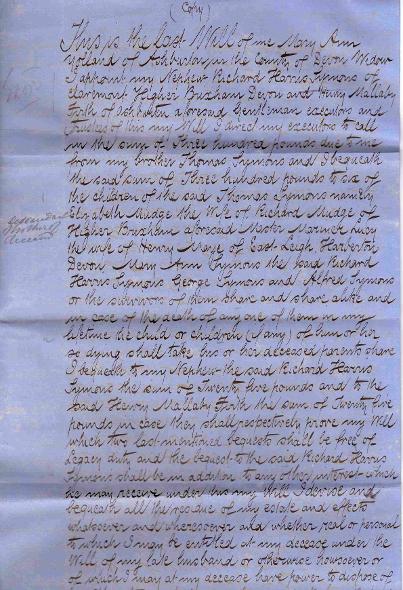 (Copy)
This is the last Will of me Mary Ann
Yolland of Ashburton in the County of Devon Widow
I appoint my Nephew Richard Harris Symons of
Claremont Higher Brixham Devon and Henry Mallaby
Firth of Ashburton aforesaid Gentleman executors and
Trustees of this my Will I direct my executors to call
in the sum of Three hundred pounds due to me
from my brother Thomas Symons and I bequeath
the said sum of Three hundred pounds to six of
the children of the said Thomas Symons namely
Elizabeth Mudge the Wife of Richard Mudge of
Higher Brixham aforesaid Hester
the wife of Henry of East Leigh Harberton
Devon Mary Ann Symons the said Richard
Harris Symons George Symons and Alfred Symons
or the survivors of them share and share alike and
in case of the death of any one of them in my
lifetime the child or children (if any) of him or her
so dying shall take his or her deceased parents share
I bequeath to my Nephew the said Richard Harris
Symons the sum of Twenty five pounds and to the
said Henry Mallaby Firth the sum of Twenty five
pounds in case they shall respectively prove my Will
which two last mentioned bequests shall be free of
Legacy duty and the bequest to the said Richard Harris
Symons shall be in addition to any other interest which
he may receive under this my Will I devise and
bequeath all the residue of my estate and effects
whatsoever and wheresoever and whether real or personal
to which I may be entitled at my decease under the
Will of my late husband or otherwise howsoever or
of which I may at my decease have power to dispose of